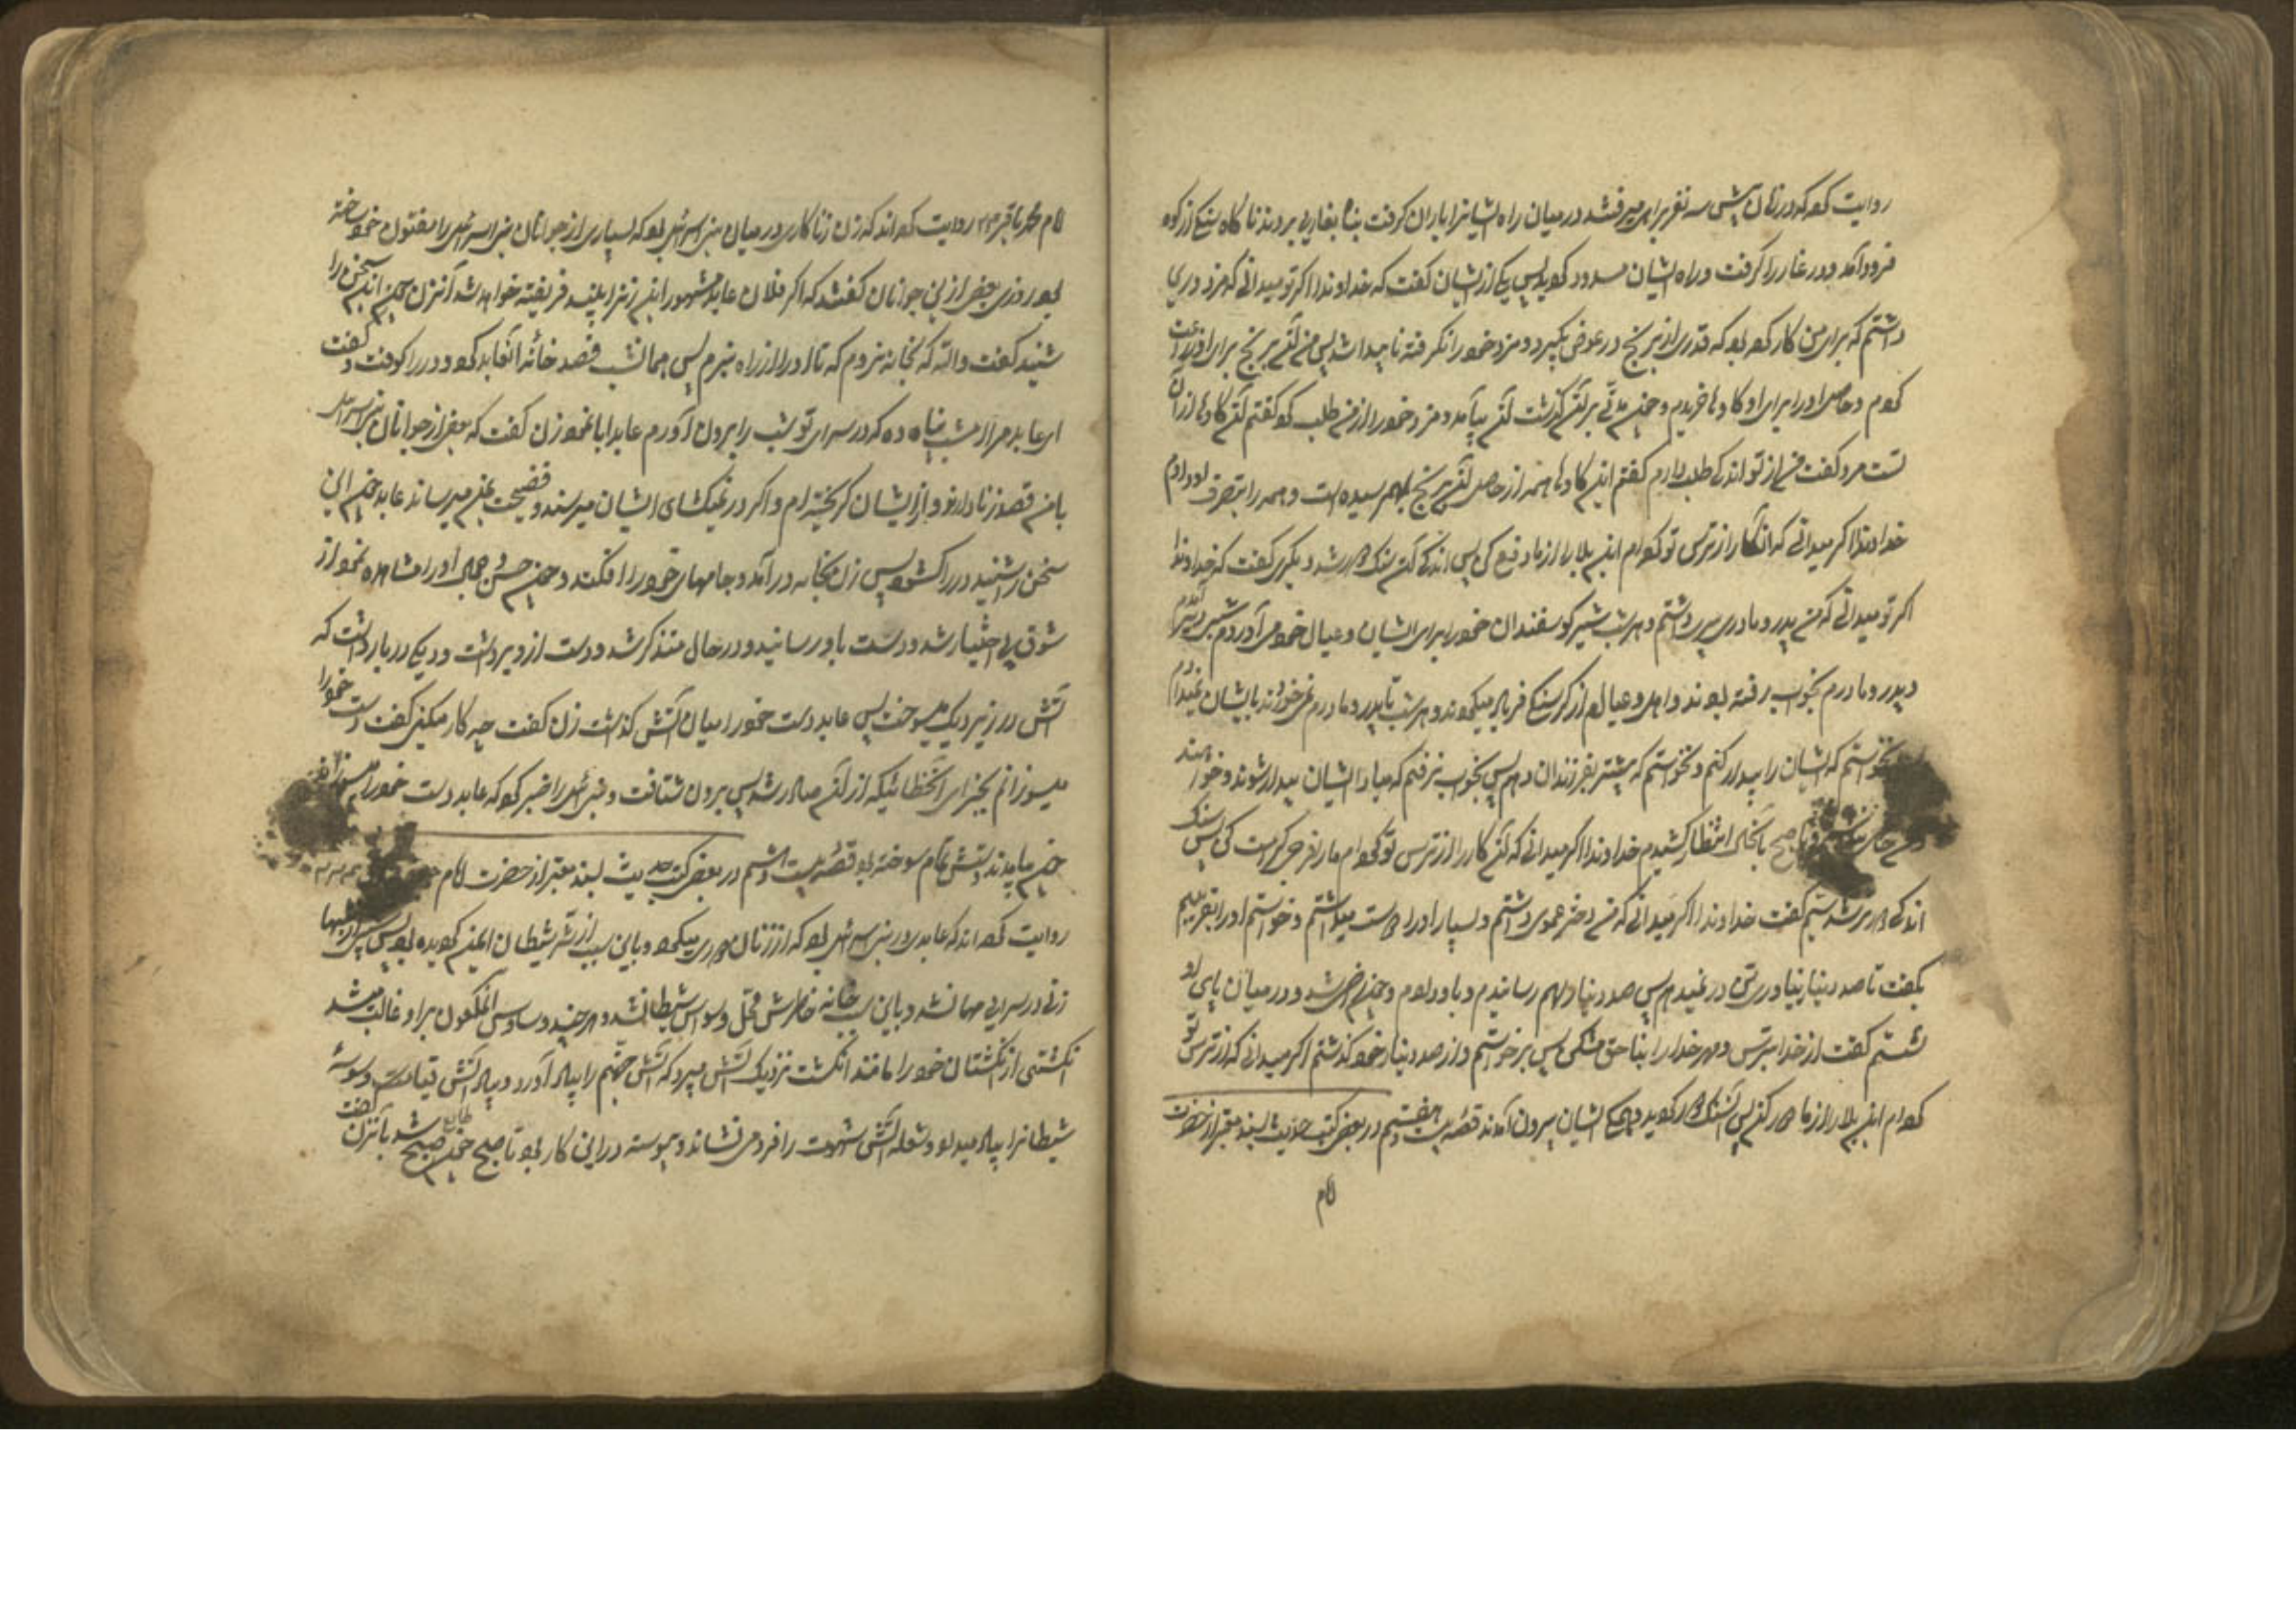 روایت کرده که در زمان پیش سه نفر براهی میرفتند در میان راه ایشانرا باران گرفت پناه بغاری بردند ناگاه سنگی از کوه
فرود آمد و در غار را گرفت و راه ایشان مسدود گردید پس یکی از ایشان گفت که خداوندا اگر تو میدانی که مزدوری
داشتم که برای من کار کرده بود که قدری از برنج در عوض بگیرد و مزد خود را نگرفته ناپیدا شد پس من آن برنج برای او زراعت
کردم و حاصل او را برای او گاوها خریدم و چون مدتی بر آن گذشت آن بیامد و مزد خود را از من طلب کرد گفتم آن گاوها از آن
تست مرد گفت من از تو اندکی طلب دارم گفتم این گاوها همه از حاصل آن برنج بهم رسیده است و همه را بتصرف او دادم
خداوندا اگر میدانی که آنکار را از ترس تو کرده‌ام این بلا را از ما دفع کن پس اندکی آن سنگ دور شد دیگری گفت که خداوندا
اگر تو میدانی که من پدر و مادری پیر داشتم و هر شب شیر گوسفندان خود را برای ایشان و عیال خود می‌آوردم شبی دیر آمدم
و پدر و مادرم بخواب رفته بودند و اهل و عیالم از گرسنگی فریاد میکردند و هر شب تا پدر و مادرم نمی‌خوردند بایشان نمیدادم
نخواستم که ایشان را بیدار کنم و نخواستم که پیشتر بفرزندان دهم پس بخواب نرفتم که مبادا ایشان بیدار شوند و خواهند
صبح بآنحال انتظار کشیدم خداوندا اگر میدانی که آن کار را از ترس تو کرده‌ام ما را فرجی کرامت کن پس سنگ
اندکی دور شد سیم گفت خداوندا اگر میدانی که من دختر عموی داشتم و بسیار او را دوست میداشتم و خواستم او را بفریبم
بگفت تا صد دینار نیاوری تن در نمیدهم پس صد دینار بهم رسانیدم و باو دادم و چون راضی شد و در میان پای او
نشستم گفت از خدا بترس و مهر خدا را بناحق مشکن پس برخواستم و از صد دینار خود گذشتم اگر میدانی که از ترس تو
کرده‌ام این بلا را از ما دور کن پس آن سنگ دور گردید و همگی ایشان بیرون آمدند قصّه بیست و هفتم در بعضی کتب حدیث بسند معتبر از حضرت
امام
امام محمد باقر روایت کرده‌اند که زن زناکاری در میان بنی اسرائیل بود که بسیاری از جوانان بنی اسرائیل را مفتون خود ساخته
بود روزی بعضی از این جوانان گفتند که اگر فلان عابد مشهور این زنرا ببیند فریفته خواهد شد آنزن چون این سخن را
شنید گفت والله که بخانه نروم که تا او را از راه نبرم پس همانشب قصد خانه آنعابد کرد و در را کوفت و گفت
ای عابد مرا امشب پناه ده که در سرای تو شب را بروز آورم عابد ابا نمود زن گفت که بعضی از جوانان بنی اسرائیل
با من قصد زنا دارند و از ایشان گریخته‌ام و اگر در نمیگشای ایشان میرسند و فضیحت بمن میرسانند عابد چون این
سخن را شنید در را گشود پس زن بخانه درآمد و جامهای خود را افکند و چون حسن و جمال او را مشاهده نمود از
شوق بی‌اختیار شد و دست باو رسانید و در حال متذکر شد و دست از او برداشت و دیگی در بار داشت که
آتش در زیر دیگ میسوخت پس عابد دست خود را میان آتش گذاشت زن گفت چه کار میکنی گفت دست خود را
میسوزانم بجزای آنخطائیکه از آن صادر شد پس بیرون شتافت و بنی اسرائیل را خبر کرد که عابد دست خود را میسوزاند
چون بیامدند دستش تمام سوخته بود قصّه بیست و هشتم در بعضی کتب حدیث بسند معتبر از حضرت امام
روایت کرده‌اند که عابدی در بنی اسرائیل بود که از زنان دوری میکرد و باین سبب از شر شیطان ایمن گردیده بود پس شبی از شبها
زنی در سرای مهمان شد و باین سبب خانه خاطرش محل وسواس شیطان شد و هر چند وساوس آنملعون بر او غالب میشد
انگشتی از انگشتان خود را مانند انگشت نزدیک آتش میبرد که آتش جهنم را بیاد آورد و بیاد آتش قیامت وسوسه
شیطانرا بیاد میداد و شعله آتش شهوت را فرو می‌نشاند و پیوسته در این کار بود تا صبح چون صبح طالع شد بآنزن گفت